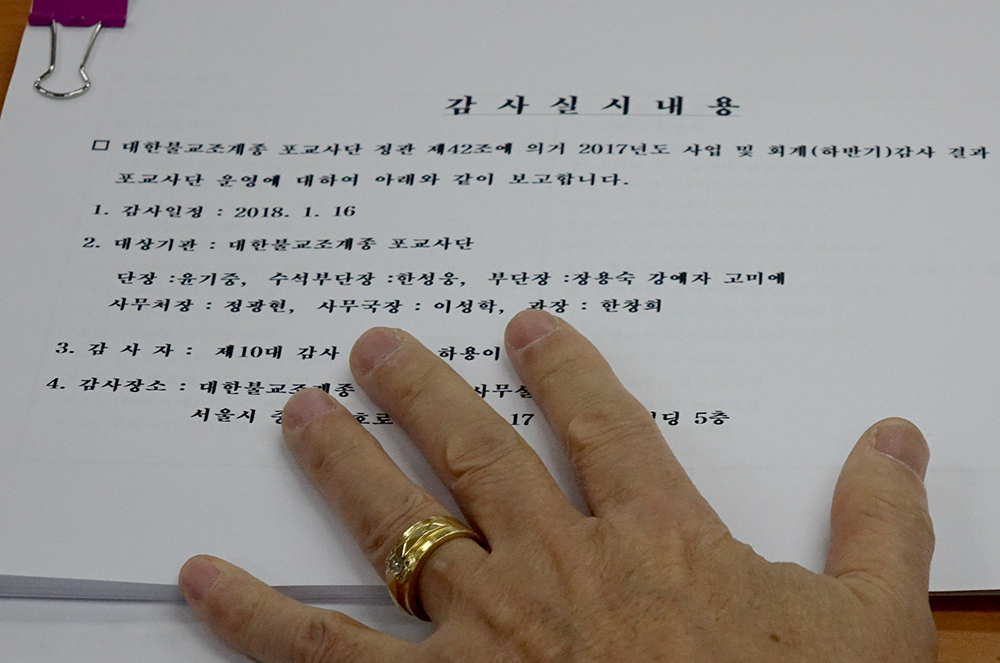 감 사 실 시 내 용
□ 대한불교조계종 포교사단 정관 제42조에 의거 2017년도 사업 및 회계(하반기)감사 결과
포교사단 운영에 대하여 아래와 같이 보고합니다.
1. 감사일정 : 2018. 1. 16
2. 대상기관 : 대한불교조계종 포교사단
단장 :윤기중, 수석부단장 :한성웅, 부단장 :장용숙 강애자 고미애
사무처장 : 정광현, 사무국장 : 이성학, 과장 : 한창희
3. 감 사 자 : 제10대 감사 하용이
4. 감사장소 : 대한불교조계종 사무실
서울시 호로 17 딩 5층